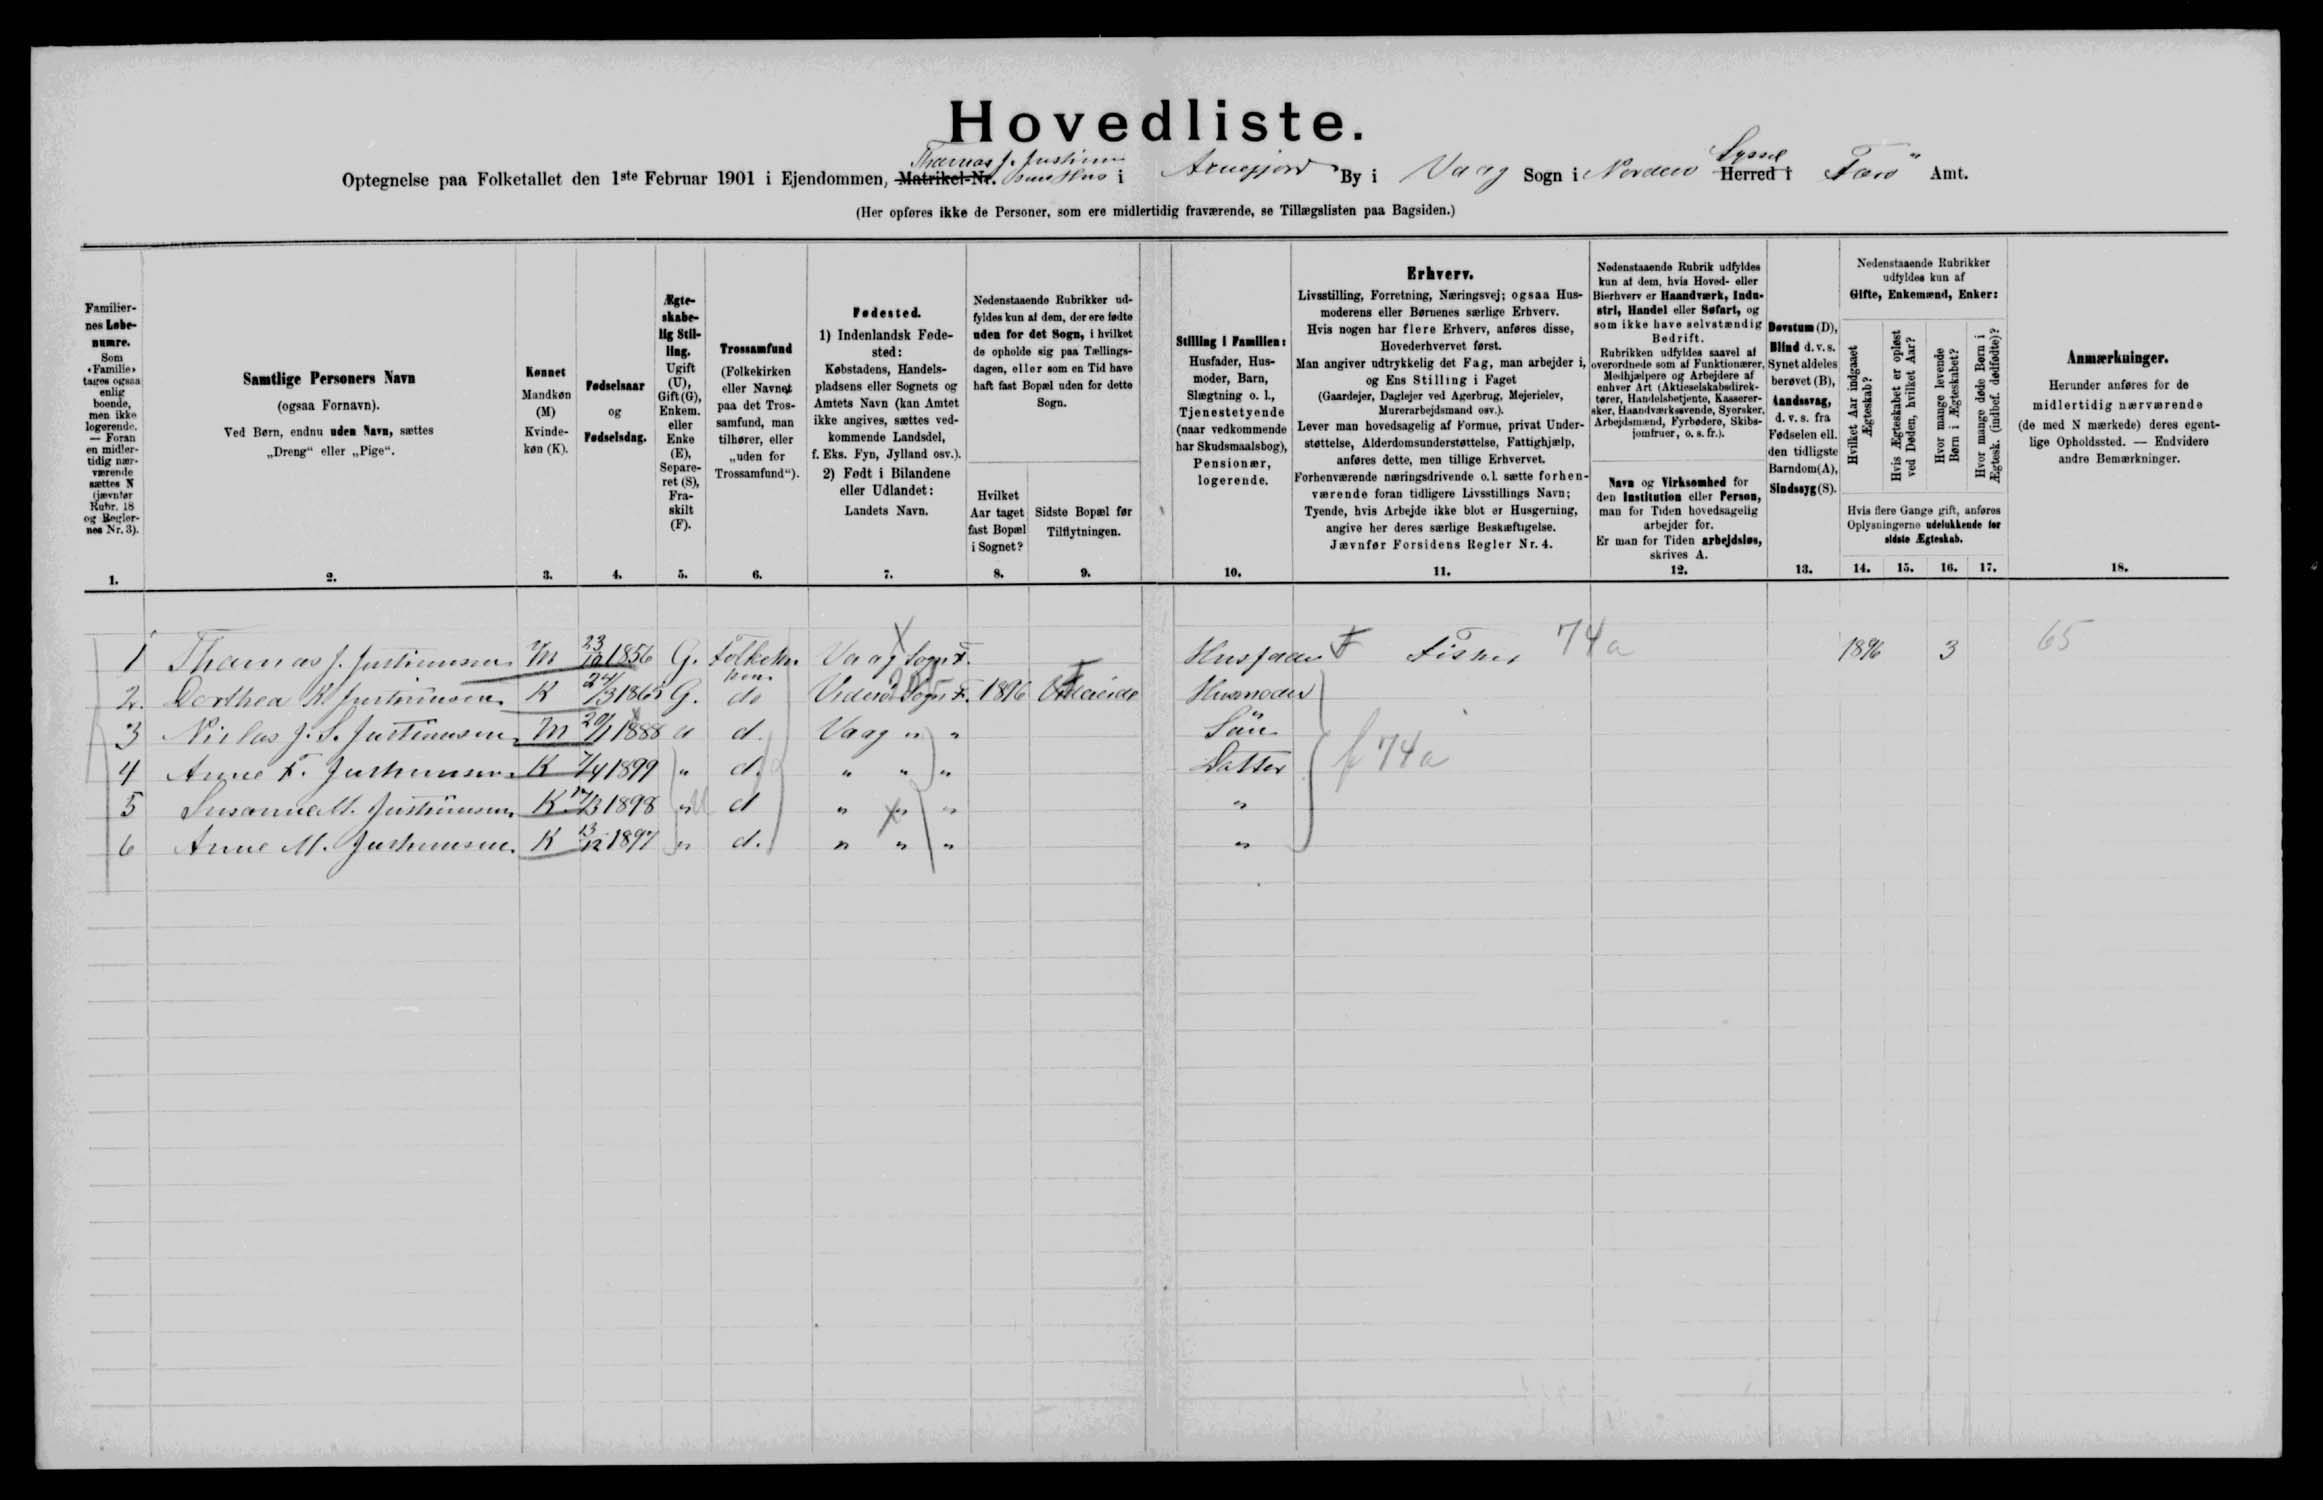 Hovedliste.
Thomas J. Justinus
Optegnelse paa Folketallet den 1ste Februar 1901 i Ejendommen, Matrikel-Nr. sens Hus i Arnefjord By i Vaag Sogn i Norderø Herred i Syssel Færø Amt.
(Her opføres ikke de Personer, som ere midlertidig fraværende, se Tillægslisten paa Bagsiden.)
Familier-
nes Løbe-
numre.
Som
«Familie»
tages ogsaa
enlig
boende,
men ikke
logerende.
— Foran
en midler-
tidig nær-
værende
sættes N
(jævnfør
Rubr. 18
og Regler-
nes Nr. 3).
1.
Samtlige Personers Navn
(ogsaa Fornavn).
Ved Børn, endnu uden Navn, sættes
„Dreng“ eller „Pige“.
2.
Kønnet
Mandkøn
(M)
Kvinde-
køn (K).
3.
Fødselsaar
og
Fødselsdag.
4.
Ægte-
skabe-
lig Stil-
ling.
Ugift
(U),
Gift (G),
Enkem.
eller
Enke
(E),
Separe-
ret (S),
Fra-
skilt
(F).
5.
Trossamfund
(Folkekirken
eller Navnet
paa det Tros-
samfund, man
tilhører, eller
„uden for
Trossamfund“).
6.
Fødested.
1) Indenlandsk Føde-
sted:
Købstadens, Handels-
pladsens eller Sognets og
Amtets Navn (kan Amtet
ikke angives, sættes ved-
kommende Landsdel,
f. Eks. Fyn, Jylland osv.).
2) Født i Bilandene
eller Udlandet:
Landets Navn.
7.
Nedenstaaende Rubrikker ud-
fyldes kun af dem, der ere fødte
uden for det Sogn, i hvilket
de opholde sig paa Tællings-
dagen, eller som en Tid have
haft fast Bopæl uden for dette
Sogn.
Hvilket
Aar taget
fast Bopæl
i Sognet?
8.
Sidste Bopæl før
Tilflytningen.
9.
Stilling i Familien:
Husfader, Hus-
moder, Barn,
Slægtning o. l.,
Tjenestetyende
(naar vedkommende
har Skudsmaalsbog),
Pensionær,
logerende.
10.
Erhverv.
Livsstilling, Forretning, Næringsvej; ogsaa Hus-
moderens eller Børnenes særlige Erhverv.
Hvis nogen har flere Erhverv, anføres disse,
Hovederhvervet først.
Man angiver udtrykkelig det Fag, man arbejder i,
og Ens Stilling i Faget
(Gaardejer, Daglejer ved Agerbrug, Mejerielev,
Murerarbejdsmand osv.).
Lever man hovedsagelig af Formue, privat Under-
støttelse, Alderdomsunderstøttelse, Fattighjælp,
anføres dette, men tillige Erhvervet.
Forhenværende næringsdrivende o. l. sætte forhen-
værende foran tidligere Livsstillings Navn;
Tyende, hvis Arbejde ikke blot er Husgerning,
angive her deres særlige Beskæftigelse.
Jævnfør Forsidens Regler Nr. 4.
11.
Nedenstaaende Rubrik udfyldes
kun af dem, hvis Hoved- eller
Bierhverv er Haandværk, Indu-
stri, Handel eller Søfart, og
som ikke have selvstændig
Bedrift.
Rubrikken udfyldes saavel af
overordnede som af Funktionærer,
Medhjælpere og Arbejdere af
enhver Art (Aktieselskabsdirek-
tører, Handelsbetjente, Kasserer-
sker, Haandværkssvende, Syersker,
Arbejdsmænd, Fyrbødere, Skibs-
jomfruer, o. s. fr.).
Navn og Virksomhed for
den Institution eller Person,
man for Tiden hovedsagelig
arbejder for.
Er man for Tiden arbejdsløs,
skrives A.
12.
Døvstum (D),
Blind d. v. s.
Synet aldeles
berøvet (B),
Aandssvag,
d. v. s. fra
Fødselen ell.
den tidligste
Barndom (A),
Sindssyg (S).
13.
Nedenstaaende Rubrikker
udfyldes kun af
Gifte, Enkemænd, Enker:
Hvilket Aar indgaaet
Ægteskab?
Hvis Ægteskabet er opløst
ved Døden, hvilket Aar?
Hvor mange levende
Børn i Ægteskabet?
Hvor mange døde Børn i
Ægtesk. (indbef. dødfødte)?
Hvis flere Gange gift, anføres
Oplysningerne udelukkende for
sidste Ægteskab.
14. 15. 16. 17.
Anmærkninger.
Herunder anføres for de
midlertidig nærværende
(de med N mærkede) deres egent-
lige Opholdssted. — Endvidere
andre Bemærkninger.
18.
1 Thomas J. Justinussen M 23/10 1856 G. Folkekir Vaag Sogn F. Husfader F Fisker 74a 1896 3 65
2. Dorthea K. Justinussen K 24/3 1865 G. do Viderø Sogn F. 1896 Husmoder
3 Niclas J. S. Justinussen M 20/1 1888 U d. Vaag " " Sön
4 Anne F. Justinussen K 7/4 1899 " d. " " " Datter f 74a
5 Susanne M. Justinussen K 17/3 1898 " d " " " "
6 Anne M. Justinussen. K 13/12 1897 " d. " " " "